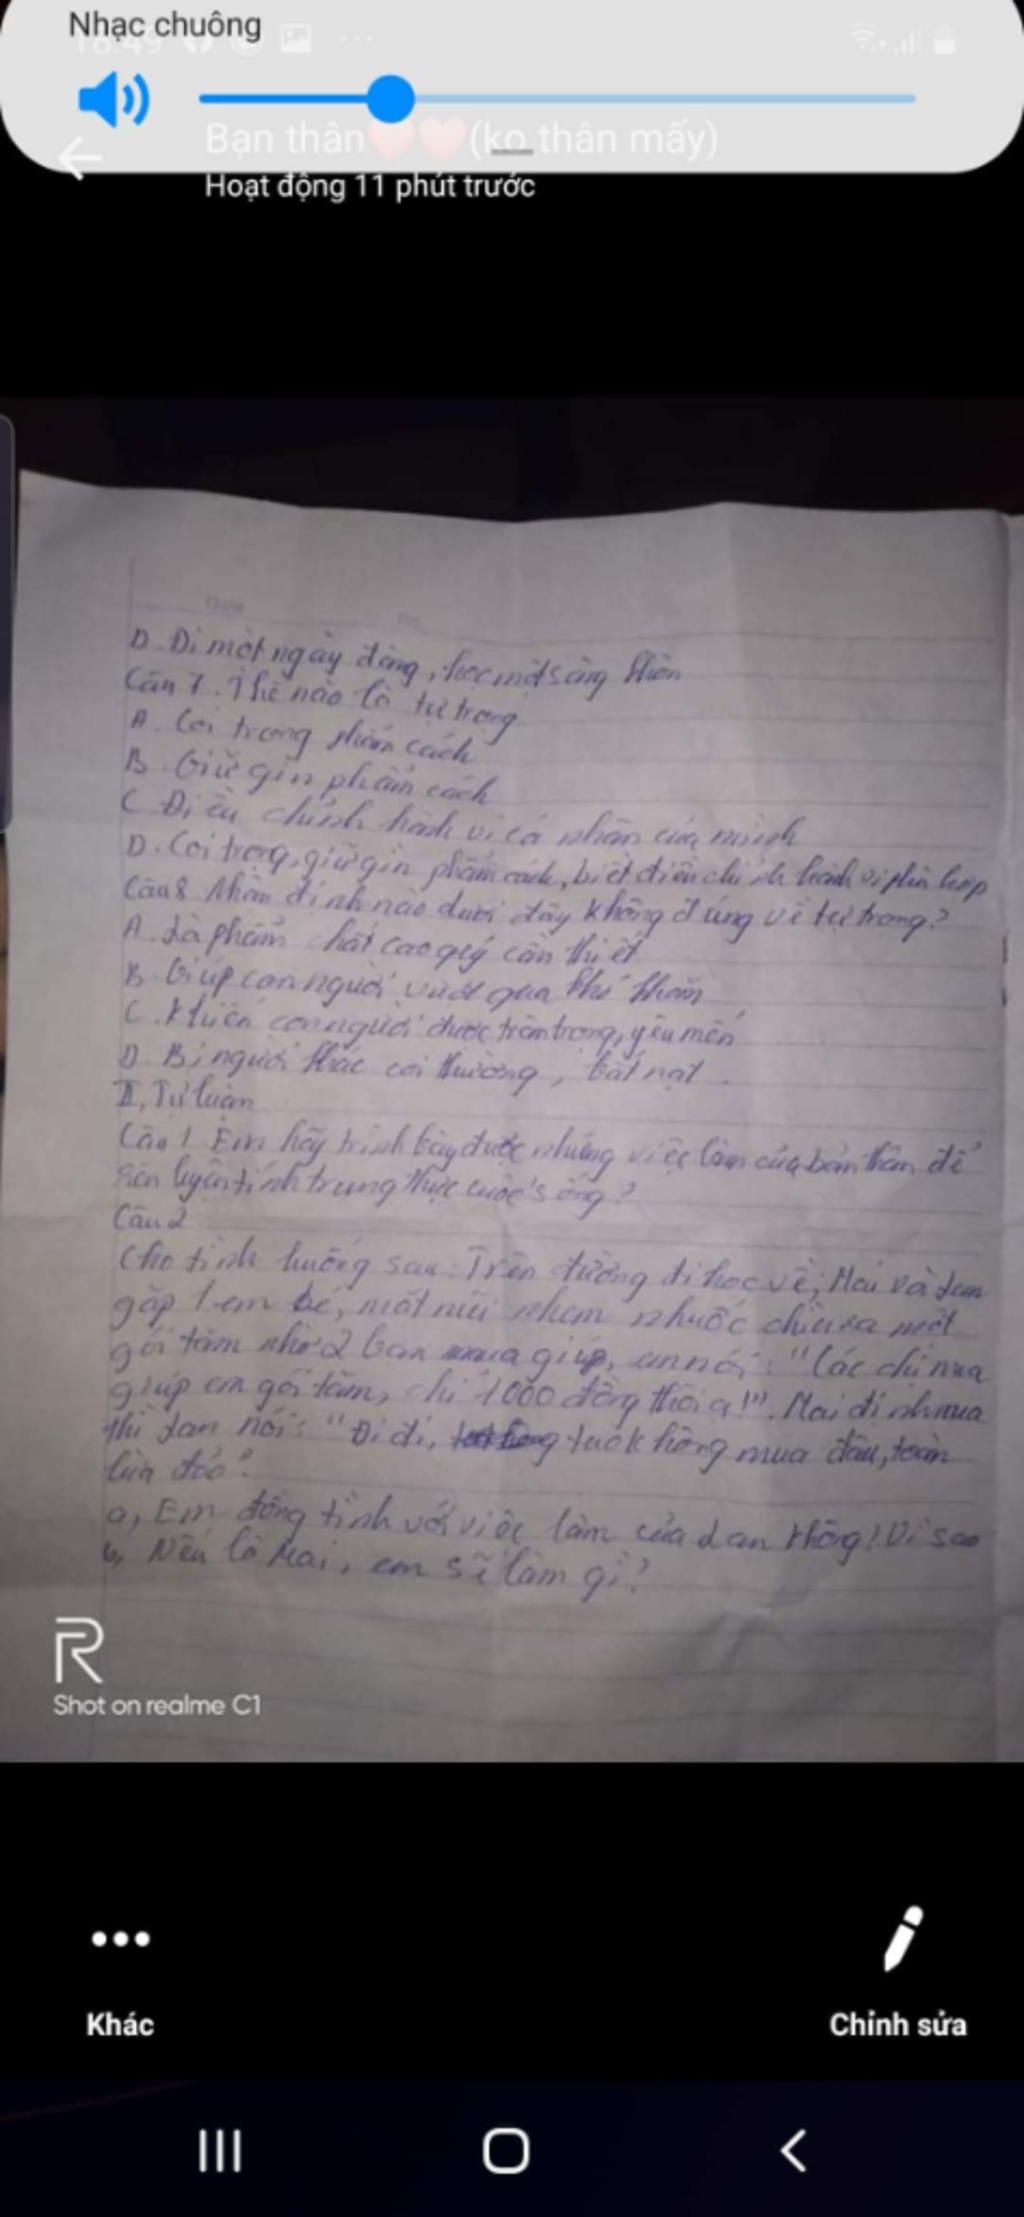 Nhạc chuông
Bạn thân (ko thân mấy)
Hoạt động 11 phút trước
D. Đi một ngày đàng, học một sàng khôn
Câu 7. Thế nào là tự trọng
A. Coi trọng phẩm cách
B. Giữ gìn phẩm cách
C. Điều chỉnh hành vi cá nhân của mình
D. Coi trọng, giữ gìn phẩm cách, biết điều chỉnh hành vi phù hợp
Câu 8 Nhận định nào dưới đây không đúng về tự trọng?
A. Là phẩm chất cao quý cần thiết
B. Giúp con người vượt qua khó khăn
C. Khiến con người được trân trọng, yêu mến
D. Bị người khác coi thường, bắt nạt.
II, Tự luận
Câu 1 Em hãy trình bày được những việc làm của bản thân để
rèn luyện tính trung thực cuộc sống?
Câu 2
Cho tình huống sau: Trên đường đi học về, Mai và Lan
gặp 1 em bé, mặt mũi nhem nhuốc chìa ra một
gói tăm nhờ 2 bạn mua giúp, em nói: "Các chị mua
giúp em gói tăm, chỉ 1000 đồng thôi ạ!". Mai định mua
thì Lan nói: "Đi đi, tụi không mua đâu, toàn
lừa đảo".
a, Em đồng tình với việc làm của Lan không? Vì sao
b, Nếu là Mai, em sẽ làm gì?
R
Shot on realme C1
Khác
Chỉnh sửa